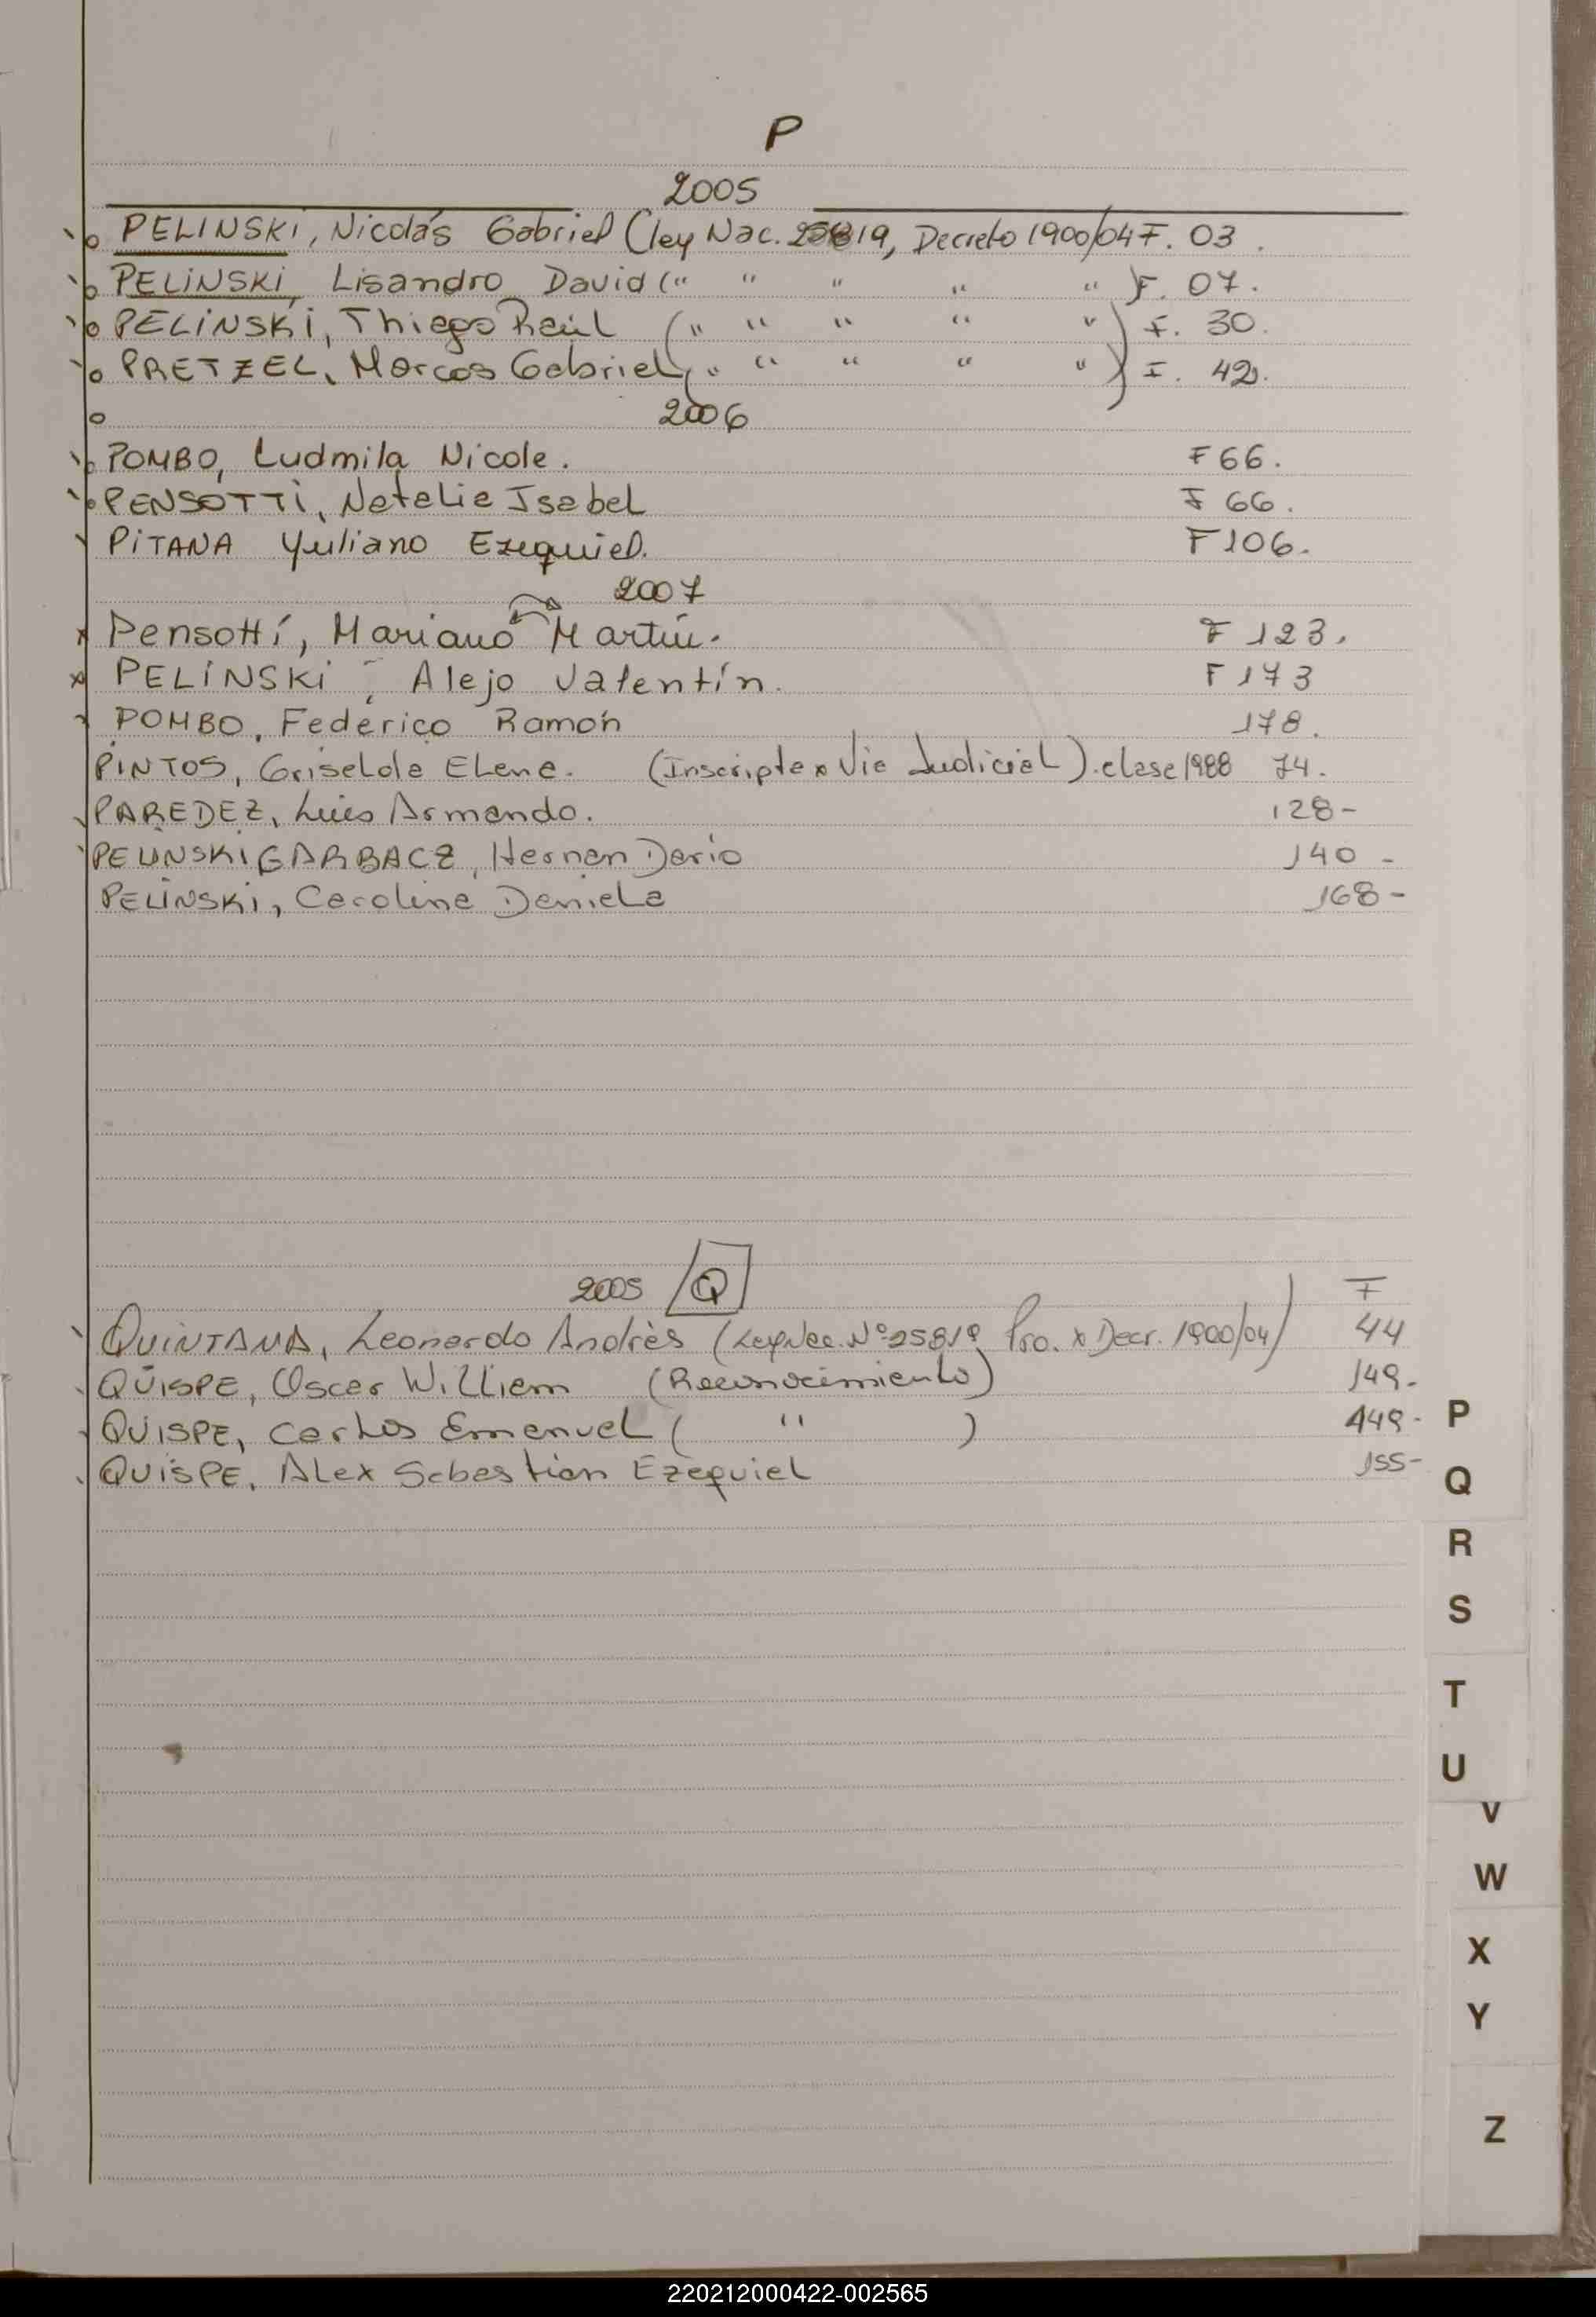 P
2005
PELINSKI, Nicolás Gabriel (Ley Nac. 25819, Decreto 1900/04 F. 03.
PELINSKI, Lisandro David (" " " " " ) F. 07.
PELINSKI, Thiego Raúl (" " " " " ) F. 30.
PRETZEL, Marcos Gabriel (" " " " " ) F. 42.
2006
POMBO, Ludmila Nicole. F 66.
PENSOTTI, Natalie Isabel F 66.
PITANA Yuliano Ezequiel. F 106.
2007
Pensotti, Mariano Martín. F 123.
PELINSKI, Alejo Valentín. F 173
POMBO, Federico Ramón 178.
PINTOS, Griselda Elena. (Inscripta x Vía Judicial). clase 1988 74.
PAREDEZ, Luis Armando. 128-
PELINSKI GARBACZ, Hernan Dario 140 -
PELINSKI, Carolina Daniela 168-
2005 Q F
QUINTANA, Leonardo Andrès (Ley Nac. Nº 25819 Pro. x Decr. 1900/04) 44
QUISPE, Oscar William (Reconocimiento) 149.
QUISPE, Carlos Emanuel ( " ) 149.
QUISPE, Alex Sebastian Ezequiel 155-
P
Q
R
S
T
U
V
W
X
Y
Z
220212000422-002565